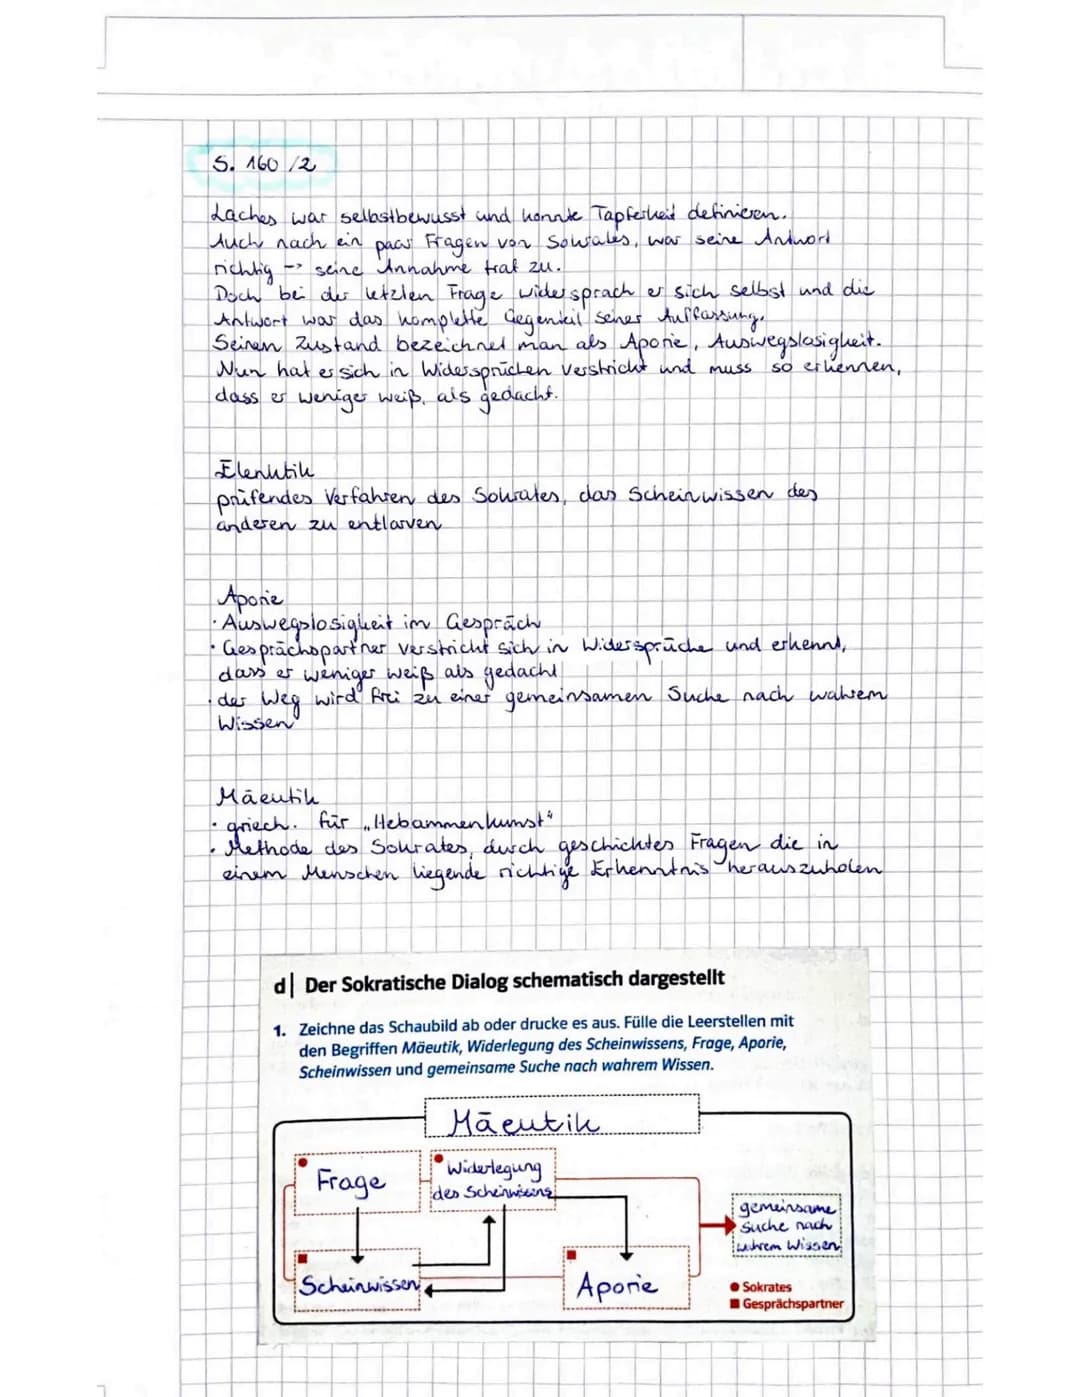 S. 160 /2
Laches war selbstbewusst und konnte Tapferkeit definieren.
Auch nach ein paar Fragen von Sokrates, war seine Antwort
richtig -> seine Annahme traf zu.
Doch bei der letzten Frage widersprach er sich selbst und die
Antwort war das komplette Gegenteil seiner Auffassung.
Seinen Zustand bezeichnet man als Aporie, Auswegslosigkeit.
Nun hat er sich in Widersprüchen verstrickt und muss so erkennen,
dass er weniger weiß, als gedacht.
Elenktik
prüfendes Verfahren des Sokrates, das Scheinwissen des
anderen zu entlarven
Aporie
· Auswegslosigkeit im Gespräch
· Gesprächspartner verstrickt sich in Widersprüche und erkennt,
dass er weniger weiß als gedacht
· der Weg wird frei zu einer gemeinsamen Suche nach wahrem
Wissen
Mäeutik
· griech. für „Hebammenkunst“
· Methode des Sokrates, durch geschicktes Fragen die in
einem Menschen liegende richtige Erkenntnis herauszuholen
d| Der Sokratische Dialog schematisch dargestellt
1. Zeichne das Schaubild ab oder drucke es aus. Fülle die Leerstellen mit
den Begriffen Mäeutik, Widerlegung des Scheinwissens, Frage, Aporie,
Scheinwissen und gemeinsame Suche nach wahrem Wissen.
Mäeutik
Frage
Widerlegung
des Scheinwissens
gemeinsame
Suche nach
wahrem Wissen
Scheinwissen
Aporie
Sokrates
Gesprächspartner